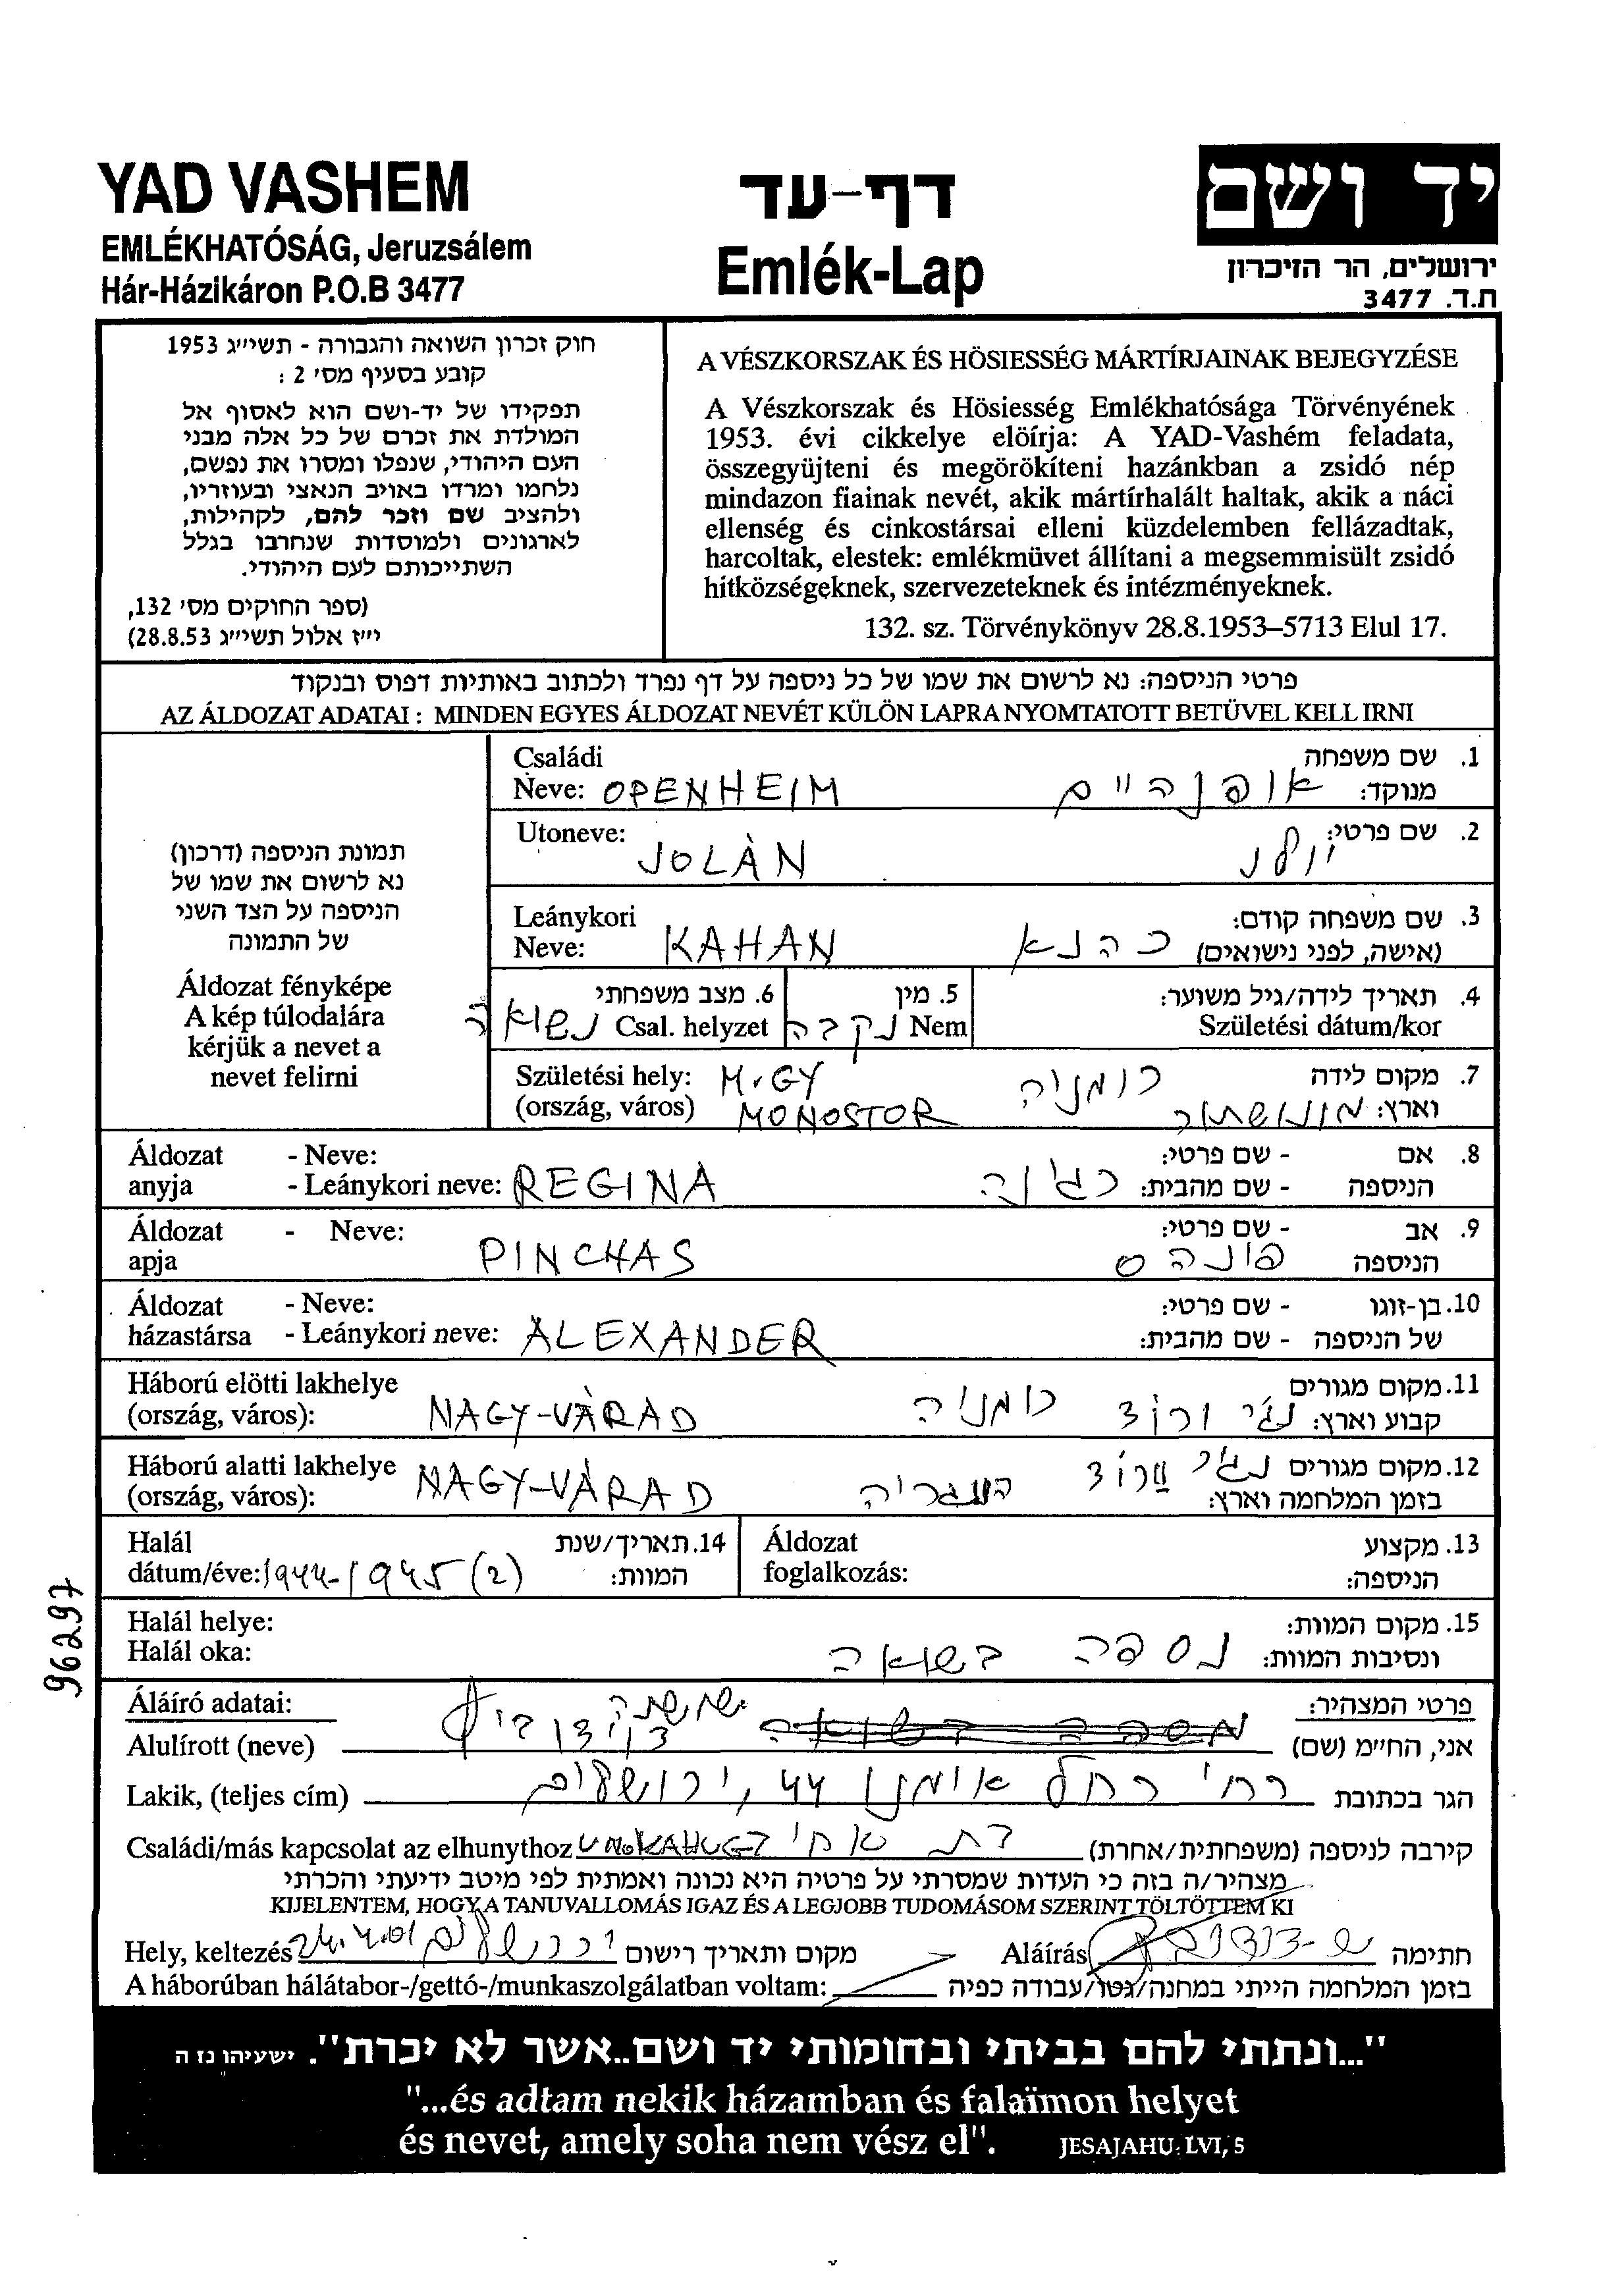 YAD VASHEM
EMLÉKHATÓSÁG, Jeruzsálem
Hár-Házikáron P.O.B 3477
דף-עד
Emlék-Lap
יד ושם
ירושלים, הר הזיכרון
ת.ד. 3477
חוק זכרון השואה והגבורה - תשי״ג 1953
קובע בסעיף מס' 2 :
תפקידו של יד-ושם הוא לאסוף אל
המולדת את זכרם של כל אלה מבני
העם היהודי, שנפלו ומסרו את נפשם,
נלחמו ומרדו באויב הנאצי ובעוזריו,
ולהציב שם וזכר להם, לקהילות,
לארגונים ולמוסדות שנחרבו בגלל
השתייכותם לעם היהודי.
(ספר החוקים מס' 132,
י״ז אלול תשי״ג 28.8.53)
A VÉSZKORSZAK ÉS HÖSIESSÉG MÁRTÍRJAINAK BEJEGYZÉSE
A Vészkorszak és Hösiesség Emlékhatósága Törvényének
1953. évi cikkelye elöírja: A YAD-Vashém feladata,
összegyüjteni és megörökíteni hazánkban a zsidó nép
mindazon fiainak nevét, akik mártírhalált haltak, akik a náci
ellenség és cinkostársai elleni küzdelemben fellázadtak,
harcoltak, elestek: emlékmüvet állítani a megsemmisült zsidó
hitközségeknek, szervezeteknek és intézményeknek.
132. sz. Törvénykönyv 28.8.1953–5713 Elul 17.
פרטי הניספה: נא לרשום את שמו של כל ניספה על דף נפרד ולכתוב באותיות דפוס ובנקוד
AZ ÁLDOZAT ADATAI : MINDEN EGYES ÁLDOZAT NEVÉT KÜLÖN LAPRA NYOMTATOTT BETÜVEL KELL IRNI
תמונת הניספה (דרכון)
נא לרשום את שמו של
הניספה על הצד השני
של התמונה
Áldozat fényképe
A kép túlodalára
kérjük a nevet a
nevet felirni
Családi
Neve: OPENHEIM
1. שם משפחה
מנוקד: אופנהיים
Utoneve: JOLÀN
2. שם פרטי: יולן
Leánykori
Neve: KAHAN
3. שם משפחה קודם:
(אישה, לפני נישואים) כהנא
6. מצב משפחתי
Csal. helyzet נשואה
5. מין
Nem נקבה
4. תאריך לידה/גיל משוער:
Születési dátum/kor
Születési hely: M.GY
(ország, város) MONOSTOR
7. מקום לידה רומניה
וארץ: מונושטור
Áldozat - Neve:
anyja - Leánykori neve: REGINA
8. אם - שם פרטי:
הניספה - שם מהבית: רג'ינה
Áldozat - Neve:
apja PINCHAS
9. אב - שם פרטי:
הניספה פונהס
Áldozat - Neve:
házastársa - Leánykori neve: ALEXANDER
10. בן-זוגו - שם פרטי:
של הניספה - שם מהבית:
Háború elötti lakhelye
(ország, város): NAGY-VÀRAD
11. מקום מגורים
קבוע וארץ: נג'י ורוד רומניה
Háború alatti lakhelye
(ország, város): NAGY-VÀRAD
12. מקום מגורים נג'י ורוד
בזמן המלחמה וארץ: הונגריה
Halál
dátum/éve: 1944-1945 (?)
14. תאריך/שנת
המוות:
Áldozat
foglalkozás:
13. מקצוע
הניספה:
Halál helye:
Halál oka:
15. מקום המוות:
ונסיבות המוות: נספה בשואה
Áláíró adatai:
פרטי המצהיר:
Alulírott (neve)
אני, הח״מ (שם) דוידוביץ
Lakik, (teljes cím)
הגר בכתובת רח' רחל אומנו 44, ירושלים
Családi/más kapcsolat az elhunythoz UNOKAHUGA
קירבה לניספה (משפחתית/אחרת) בת אחי
מצהיר/ה בזה כי העדות שמסרתי על פרטיה היא נכונה ואמתית לפי מיטב ידיעתי והכרתי
KIJELENTEM, HOGY A TANUVALLOMÁS IGAZ ÉS A LEGJOBB TUDOMÁSOM SZERINT TÖLTÖTTEM KI
Hely, keltezés ירושלים
מקום ותאריך רישום
Aláírás
חתימה
A háborúban hálátabor-/gettó-/munkaszolgálatban voltam:
בזמן המלחמה הייתי במחנה/גטו/עבודה כפיה
"...ונתתי להם בביתי ובחומותי יד ושם..אשר לא יכרת". ישעיהו נו ה
"...és adtam nekik házamban és falaïmon helyet
és nevet, amely soha nem vész el". JESAJAHU: LVI, 5
96297